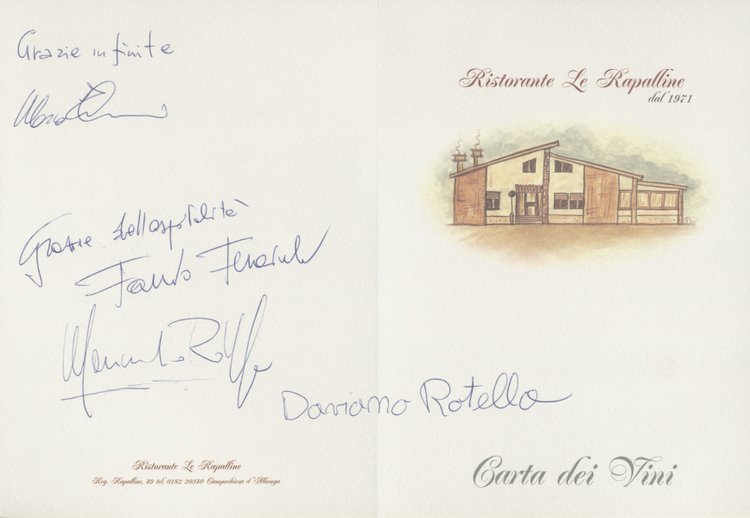 Grazie infinite
Grazie dell'ospitalità
Fausto
Daviano Rotella
Ristorante Le Rapalline
Reg. Rapalline, 49 tel. 0182 20340 Campochiesa d'Albenga
Ristorante Le Rapalline
dal 1971
Carta dei Vini